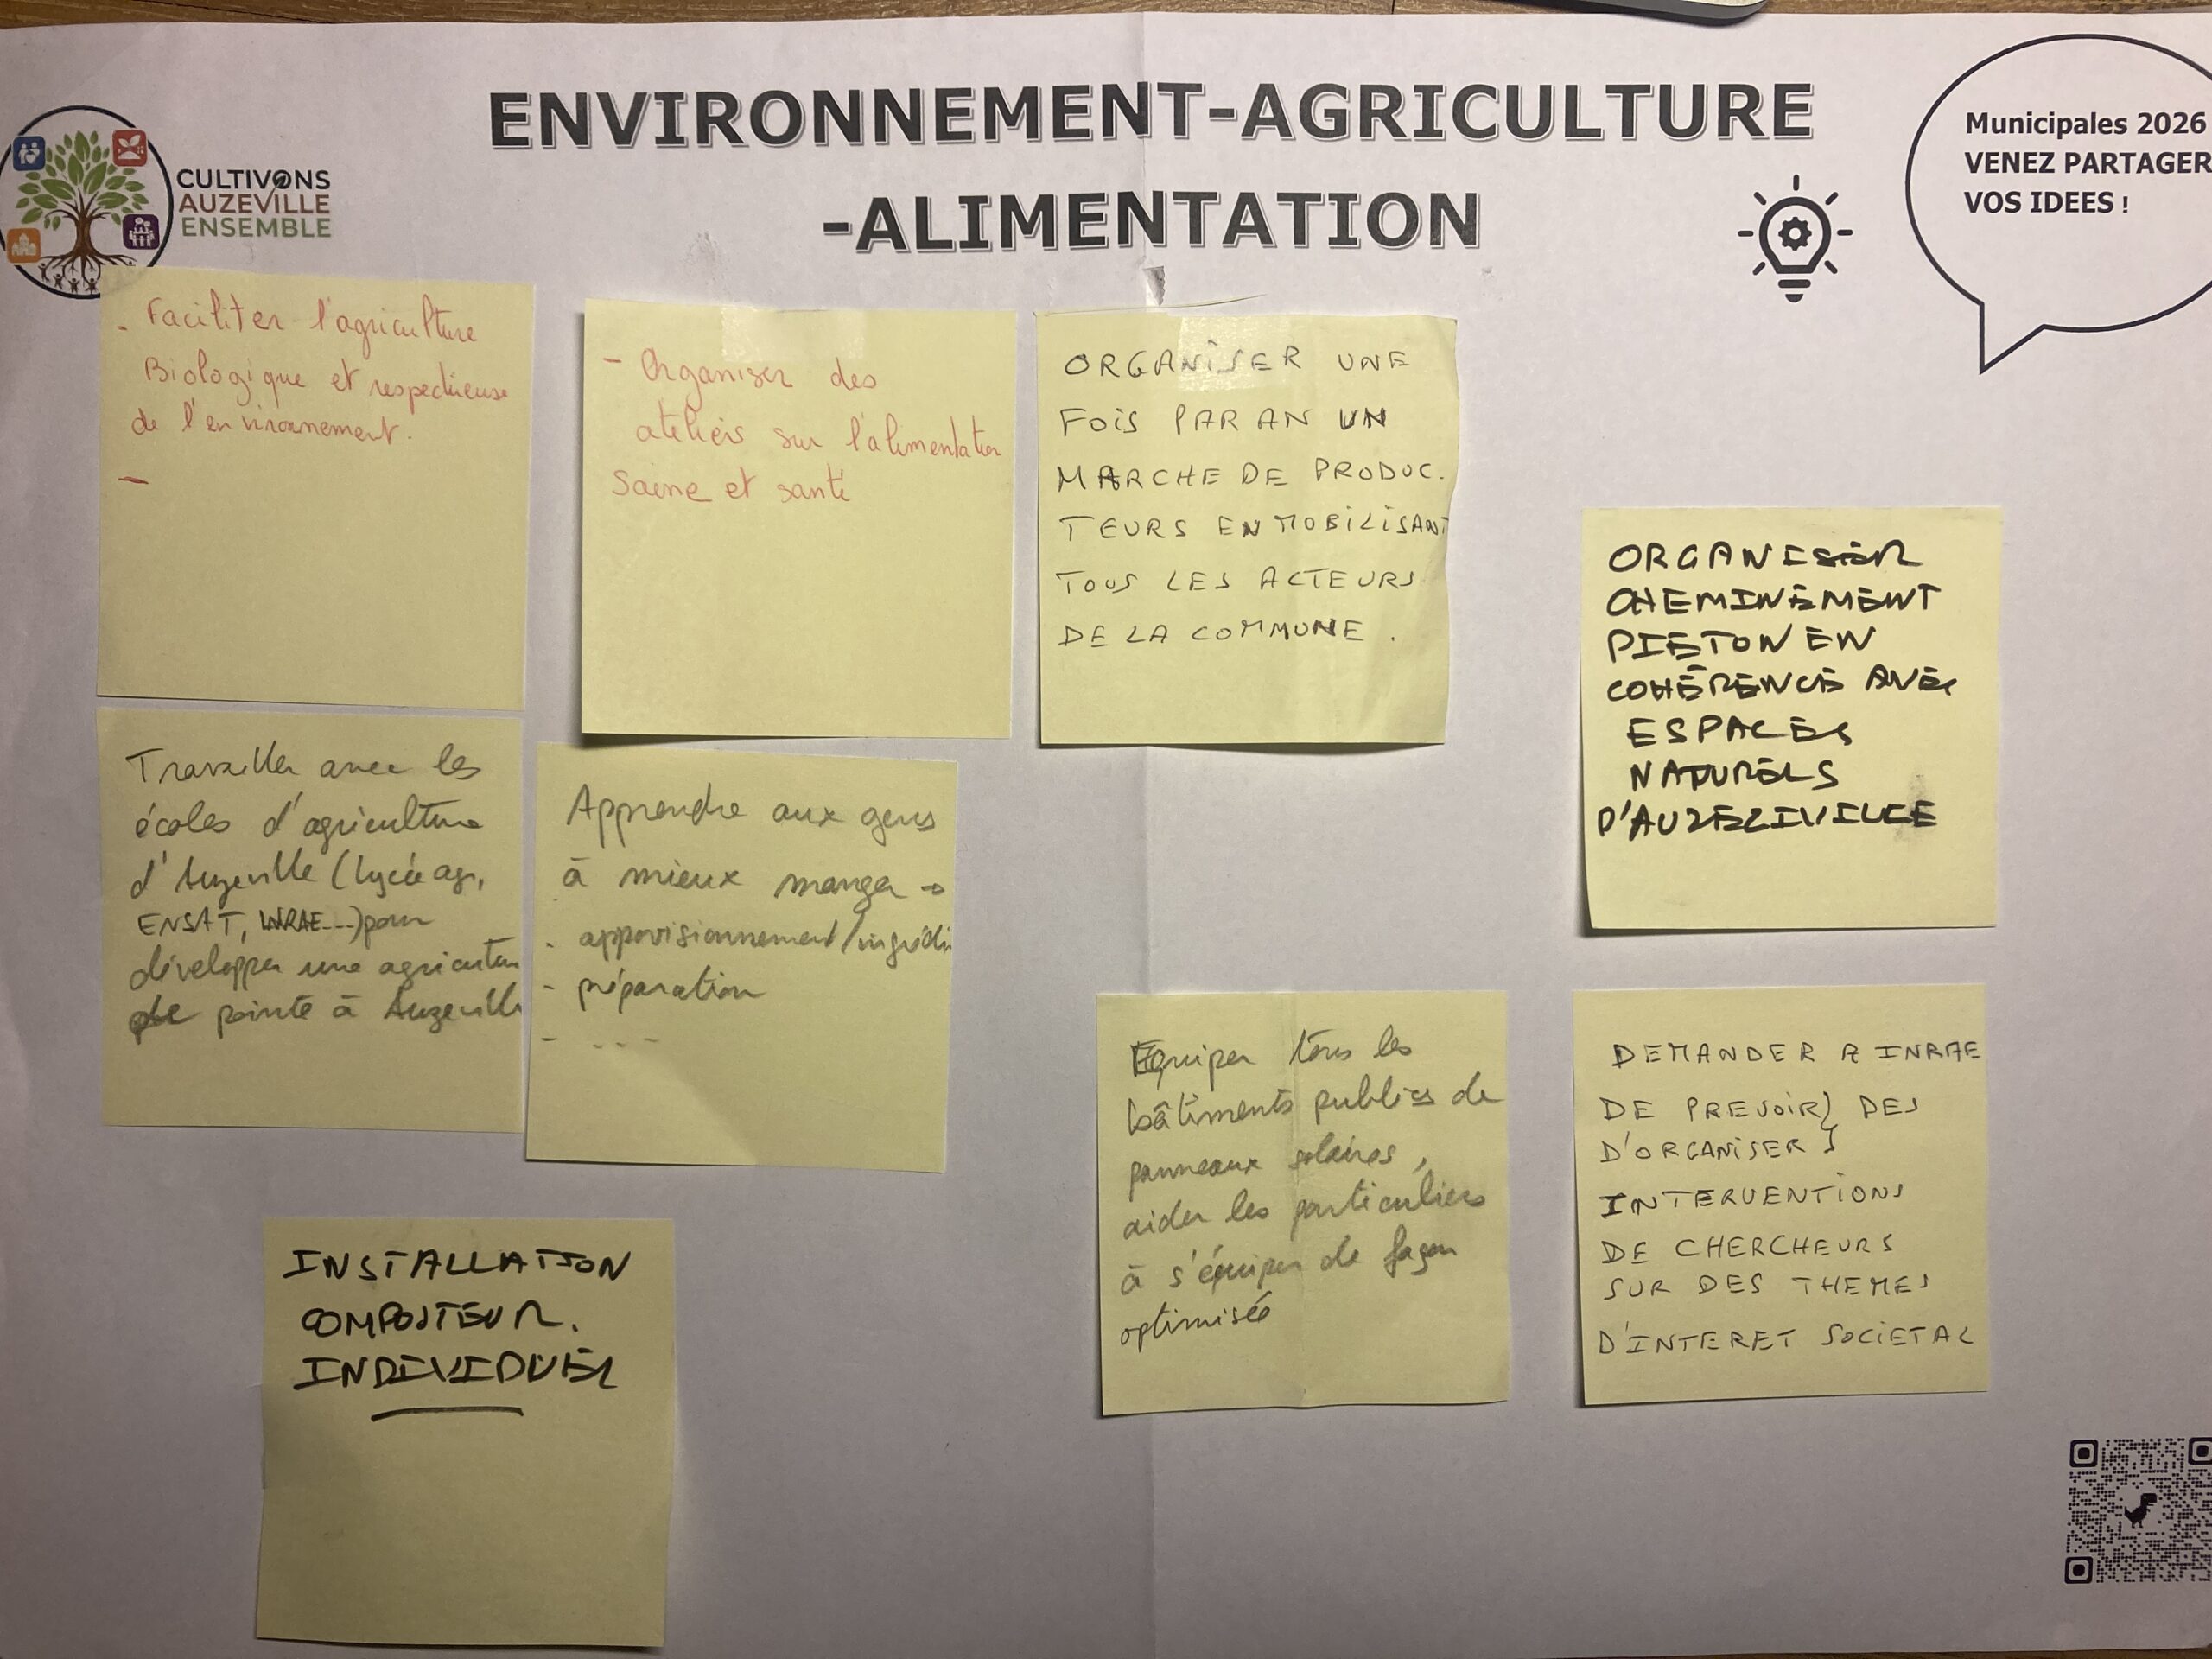 ENVIRONNEMENT-AGRICULTURE
-ALIMENTATION
CULTIVONS
AUZEVILLE
ENSEMBLE
Municipales 2026
VENEZ PARTAGER
VOS IDEES !
- Faciliter l'agriculture
Biologique et respectueuse
de l'environnement.
-
- Organiser des
ateliers sur l'alimentation
Saine et santé
ORGANISER UNE
FOIS PAR AN UN
MARCHE DE PRODUC.
TEURS EN MOBILISANT
TOUS LES ACTEURS
DE LA COMMUNE.
ORGANISER
CHEMINEMENT
PIETON EN
COHÉRENCE AVEC
ESPACES
NATURELS
Travailler avec les
écoles d'agriculture
d'Auzeville (lycée agr,
ENSAT, INRAE---) pour
développer une agricultur
de pointe à Auzeville
Apprendre aux gens
à mieux manger →
- approvisionnement/
- préparation
- ...
Equiper tous les
bâtiments publics de
panneaux solaires,
aider les particuliers
à s'équiper de façon
optimisée
DEMANDER A INRAE
DE PREVOIR} DES
D'ORGANISER}
INTERVENTIONS
DE CHERCHEURS
SUR DES THEMES
D'INTERET SOCIETAL
INSTALLATION
COMPOSTEUR.
INDIVIDUEL